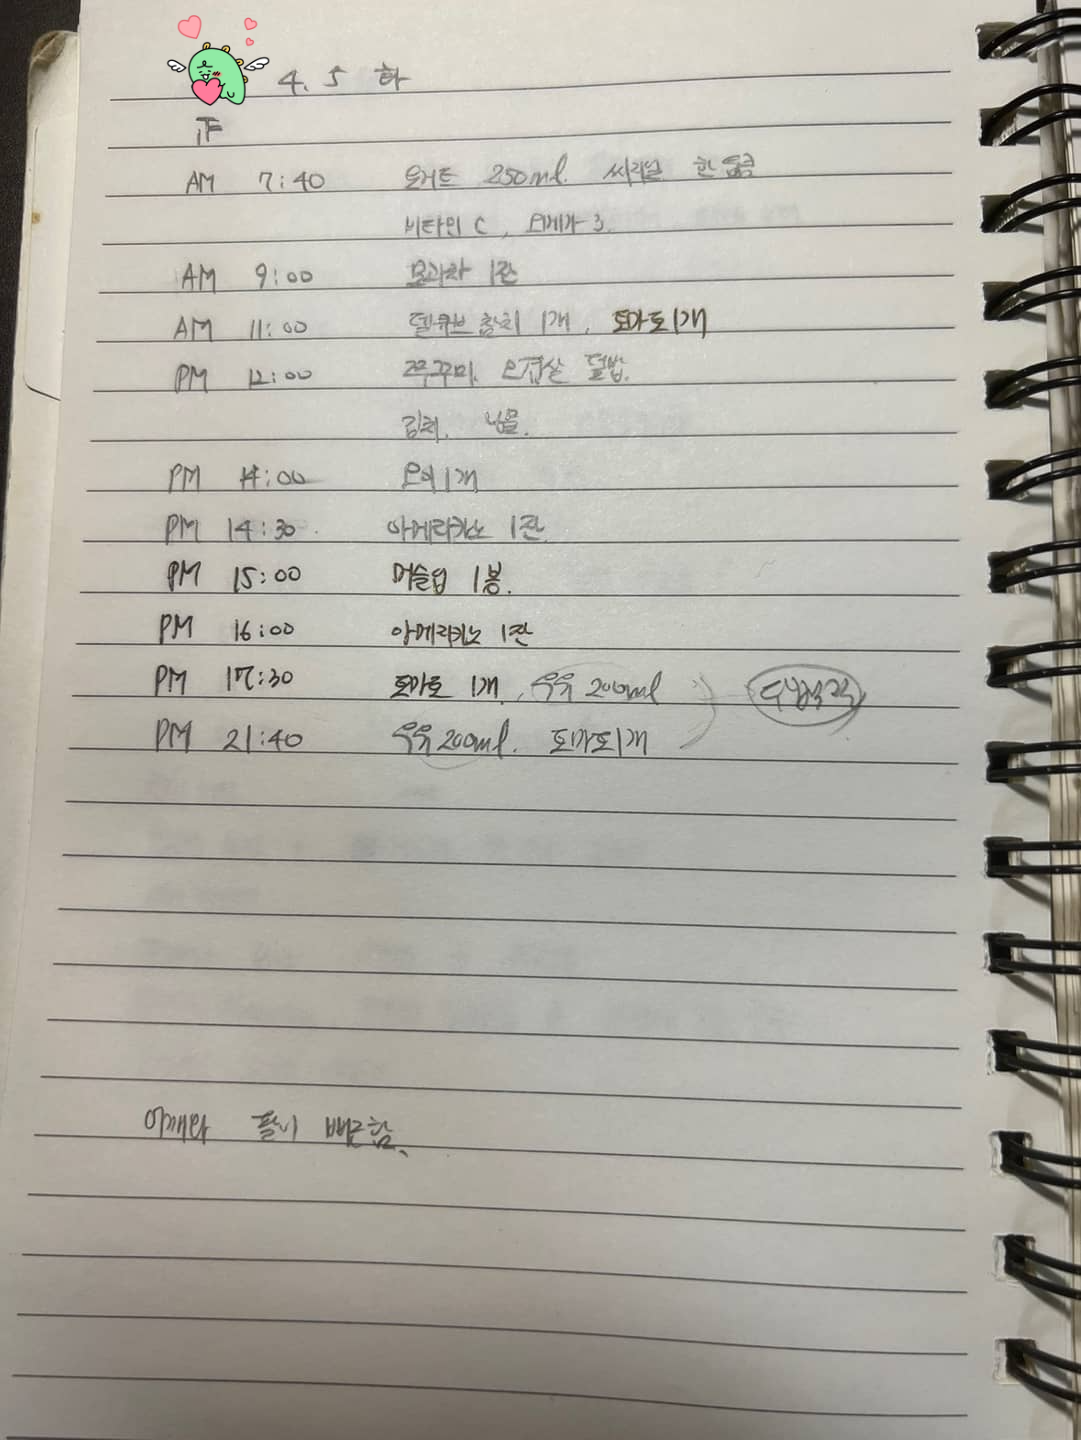 4. 5 화
正
AM 7:40 요거트 250ml. 씨리얼 한움큼
비타민 C, 오메가 3.
AM 9:00 모과차 1잔
AM 11:00 델큐브 참치 1개, 토마토1개
PM 12:00 쭈꾸미. 오겹살 덮밥.
김치. 나물.
PM 14:00 오이1개
PM 14:30 아메리카노 1잔.
PM 15:00 머슬업 1봉.
PM 16:00 아메리카노 1잔
PM 17:30 토마토 1개, 우유 200ml
PM 21:40 우유200ml. 토마토1개
어깨와 팔이 뻐근함.